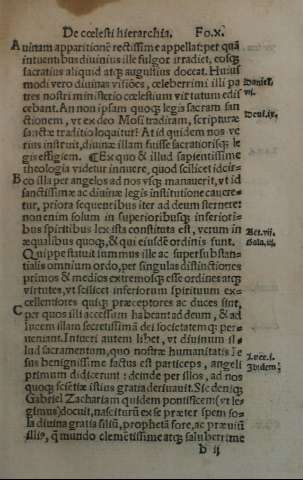 De cœlesti hierarchia. Fo.X.
A uinam apparitionẽ rectissime appellat: per quã
intuentibus diuinius ille fulgor irradiet, eosq́;
sacratius aliquid atq́; augustius doceat. Huius
modi vero diuinas visiões, celeberrimi illi pa
tres nostri ministerio cœlestium virtutum edis
cebant. An non ipsam quoq́; legis sacram san
ctionem, vt ex deo Mosi traditam, scripturæ
sanctæ traditio loquitur? At id quidem nos ve
rius instruit, diuinæ illam fuisse sacratiorisq́; le
gis effigiem. ¶Ex quo & illud sapientissime
theologia videtur innuere, quod scilicet idcir-
B co illa per angelos ad nos vsq́; manauerit, vt id
sanctissimæ ac diuinæ legis institutione cauere-
tur, priora sequentibus iter ad deum sternere:
non enim solum in superioribusq́; inferiori-
bus spiritibus lex ista constituta est, verum in
æqualibus quoq́;, & qui eiusdẽ ordinis sunt.
Quippe statuit summus ille ac supersubstan-
tialis omnium ordo, per singulas distinctiones
primos & medios extremosq́; esse ordines atq́;
virtutes, vt scilicet inferiorum spirituum ex-
cellentiores quiq́; præceptores ac duces sint,
C per quos illi accessum habeant ad deum, & ad
lucem illam secretissimã dei societatemq́; per-
uenant. Intueri autem libet, vt diuinum il-
lud sacramentum, quo nostræ humanitatis Ie
sus benignissime factus est particeps, angeli
primum didicerunt: deinde per illos, ad nos
quoq́; scientiæ istius gratia deriuauit. Sic deniq́;
Gabriel Zachariam quidem pontificem (vt le
gimus) docuit, nasciturũ ex se præter spem so-
la diuina gratia filiũ, prophetã fore, ac præuiũ
illis, q̃ mundo clementissime atq́; salubriter
b ij
Daniel.
vij.
Deut.ix.
Act.vij.
Gala.iij.
Luce.i.
Ibidem